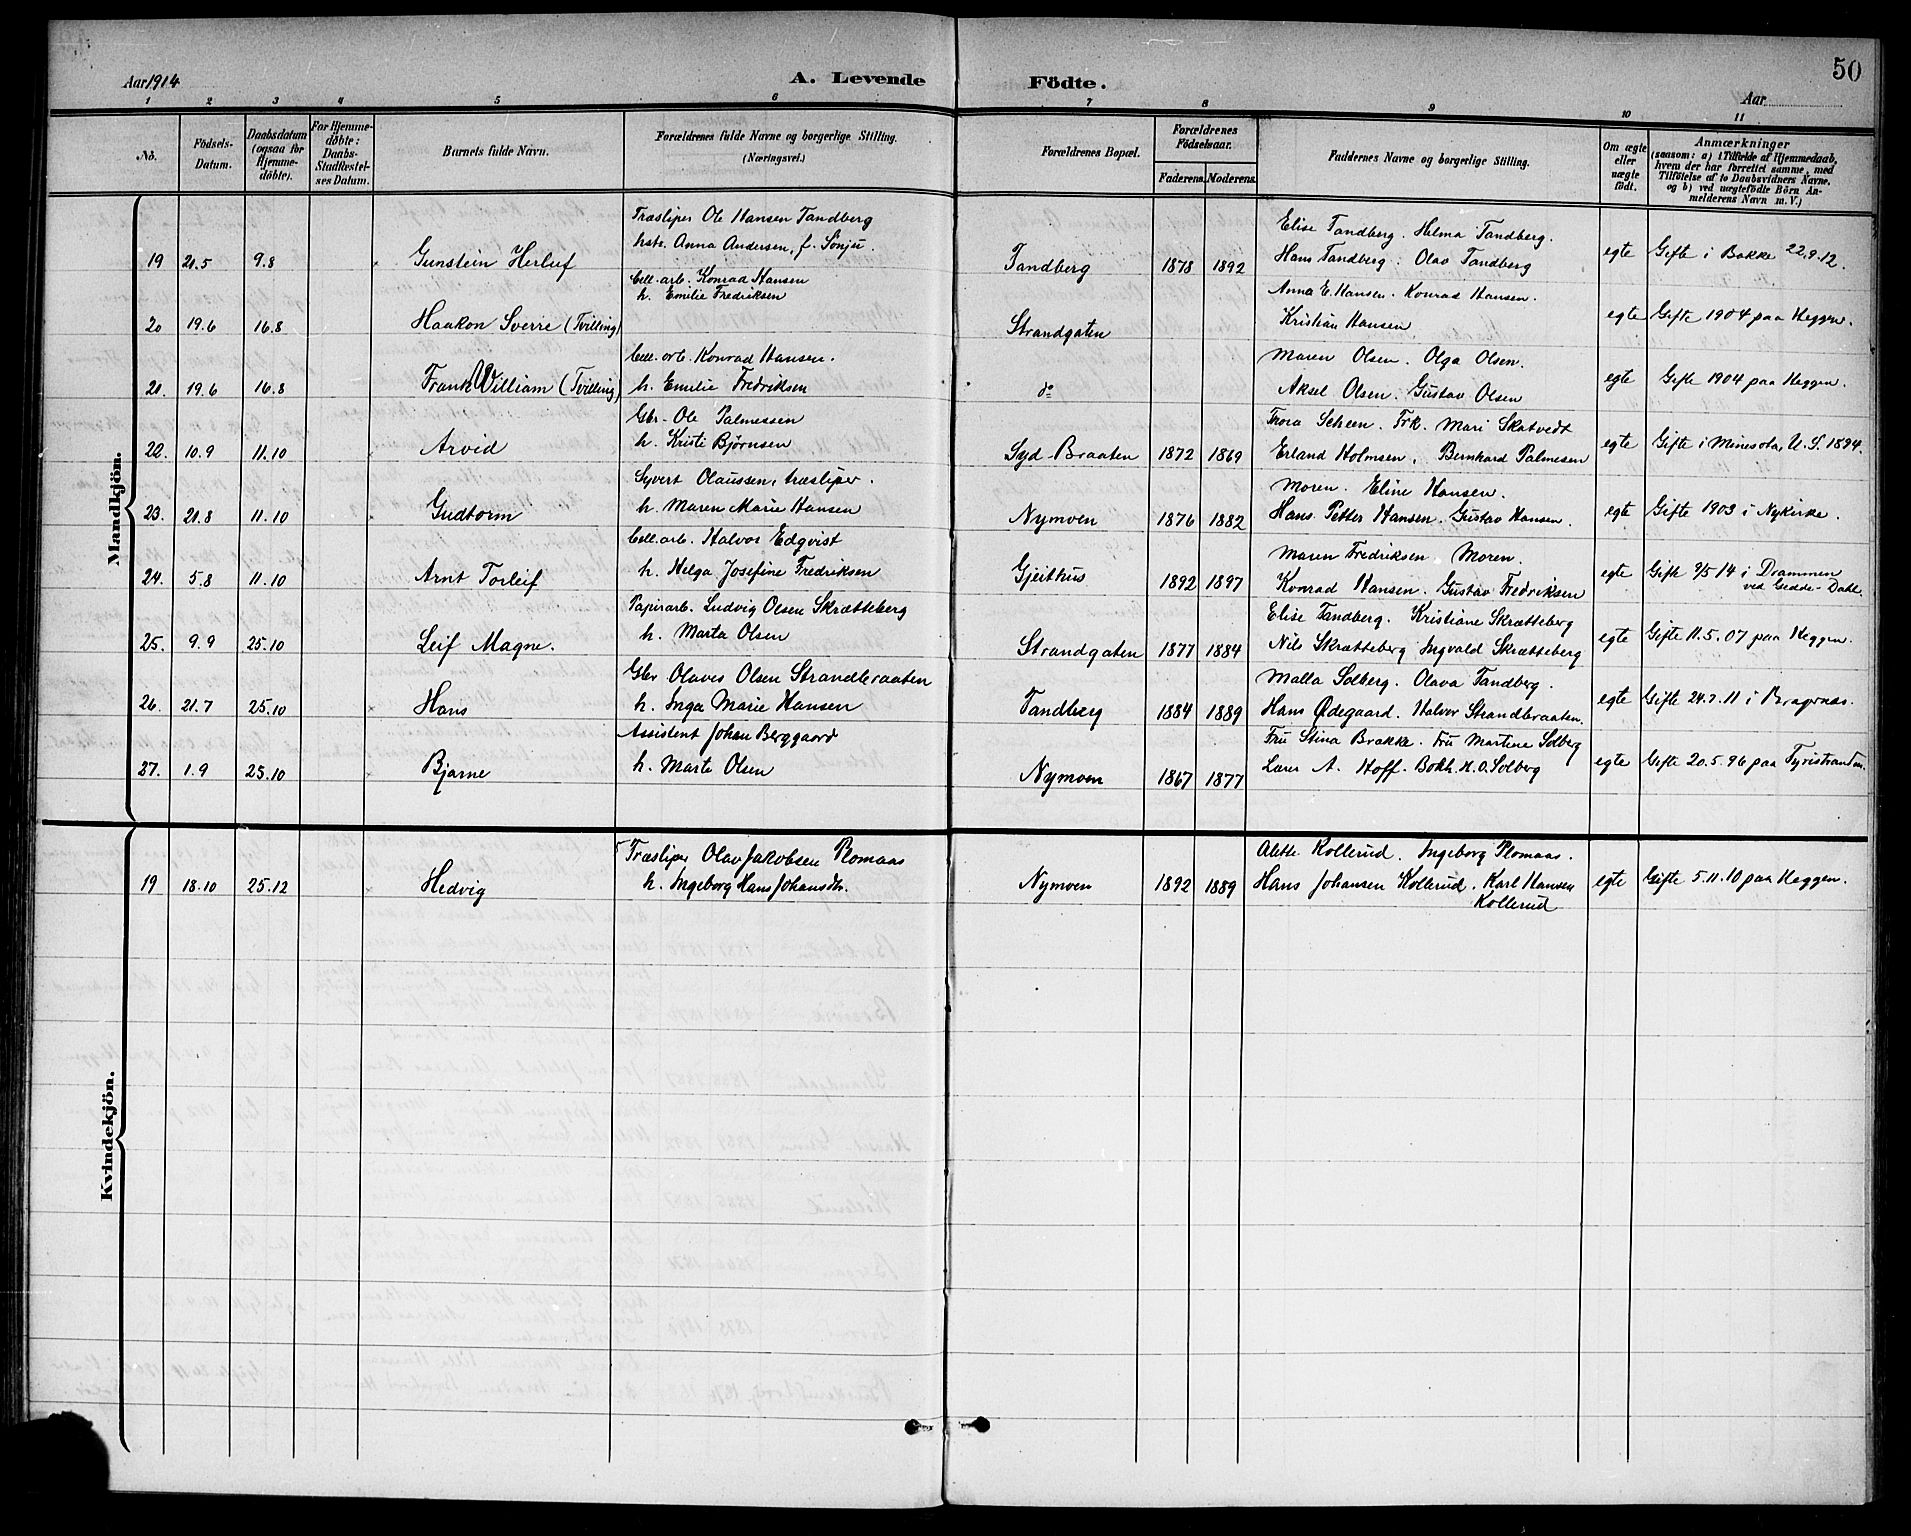 Aar 1914
A. Levende Födte.
50
Aar
1 2 3 4 5 6 7 8 9 10 11
No.
Födsels-Datum.
Daabsdatum (ogsaa for Hjemme-döbte).
For Hjemme-döbte: Daabs-Stadfæstel-ses Datum.
Barnets fulde Navn.
Forældrenes fulde Navne og borgerlige Stilling. (Næringsvei.)
Forældrenes Bopæl.
Forældrenes Födselsaar.
Faderens. Moderens.
Faddernes Navne og borgerlige Stilling.
Om ægte eller uægte födt.
Anmærkninger
(saasom: a) i Tilfælde af Hjemmedaab, hvem der har forrettet samme, med Tilföielse af to Daabsvidners Navne, og b) ved uægtefödte Börn An-melderens Navn m. V.)
Mandkjön.
Træsliper Ole Hansen Tandberg Elise Tandberg. Helma Tandberg.
19 21.5 9.8 Gunstein Herluf hstr. Anna Andersen, f. Sönju. Tandberg 1878 1892 Hans Tandberg. Olav Tandberg egte Gifte i Bakke 22.9.12.
Cell. arb. Konrad Hansen Anna E. Hansen. Konrad Hansen.
20 19.6 16.8 Haakon Sverre (Tvilling) h. Emilie Fredriksen Strandgaten Kristian Hansen egte Gifte 1904 paa Heggen.
Cell. arb. Konrad Hansen. Maren Olsen. Olga Olsen.
21. 19.6 16.8 Frank William (Tvilling) h. Emilie Fredriksen do Aksel Olsen. Gustav Olsen egte Gifte 1904 paa Heggen.
Gbr. Ole Palmessen Thora Scheen. Frk. Mari Skatvedt
22. 10.9 11.10 Arvid h. Kristi Bjørnsen Syd-Braaten 1872 1869 Erland Holmsen. Bernhard Palmesen egte Gifte i Minesota, U.S. 1894.
Syvert Olaussen, træsliper. Moren. Eline Hansen.
23. 21.8 11.10 Gudtorm h. Maren Marie Hansen Nymoen 1876 1882 Hans Petter Hansen. Gustav Hansen. egte Gifte 1903 i Nykirke.
Cell. arb. Halvor Edqvist Maren Fredriksen. Moren.
24. 5.8 11.10 Arnt Torleif h. Helga Josefine Fredriksen Gjeithus 1892 1897 Konrad Hansen. Gustav Fredriksen egte Gifte 9/5 14 i Drammen ved Gedde-Dahl.
Papirarb. Ludvig Olsen Skrætteberg Elise Tandberg. Kristiane Skrætteberg
25. 9.9 25.10 Leif Magne. h. Marta Olsen Strandgaten 1877 1884 Nils Skrætteberg Ingvald Skrætteberg egte Gifte 11.5.07 paa Heggen.
Gbr Olaves Olsen Strandbraaten Malla Solberg. Olava Tandberg.
26. 21.7 25.10 Hans h. Inga Marie Hansen Tandberg 1884 1889 Hans Ødegaard. Halvor Strandbraaten. egte Gifte 24.7.11 i Bragernæs.
Assistent Johan Berggaard Fru Stina Brakke. Fru Martene Solberg
27. 1.9 25.10 Bjarne h. Marte Olsen Nymoen 1867 1877 Lærer A. Hoff. Bokh. H.O. Solberg egte Gifte 20.5.96 paa Tyristranden.
Kvindekjön.
Træsliper Olav Jakobsen Plomaas Alette Kollerud. Ingeborg Plomaas.
19 18.10 25.12 Hedvig h. Ingeborg Hans Johansdtr. Nymoen 1892 1889 Hans Johansen Kollerud. Karl Hansen Kollerud egte Gifte 5.11.10 paa Heggen.